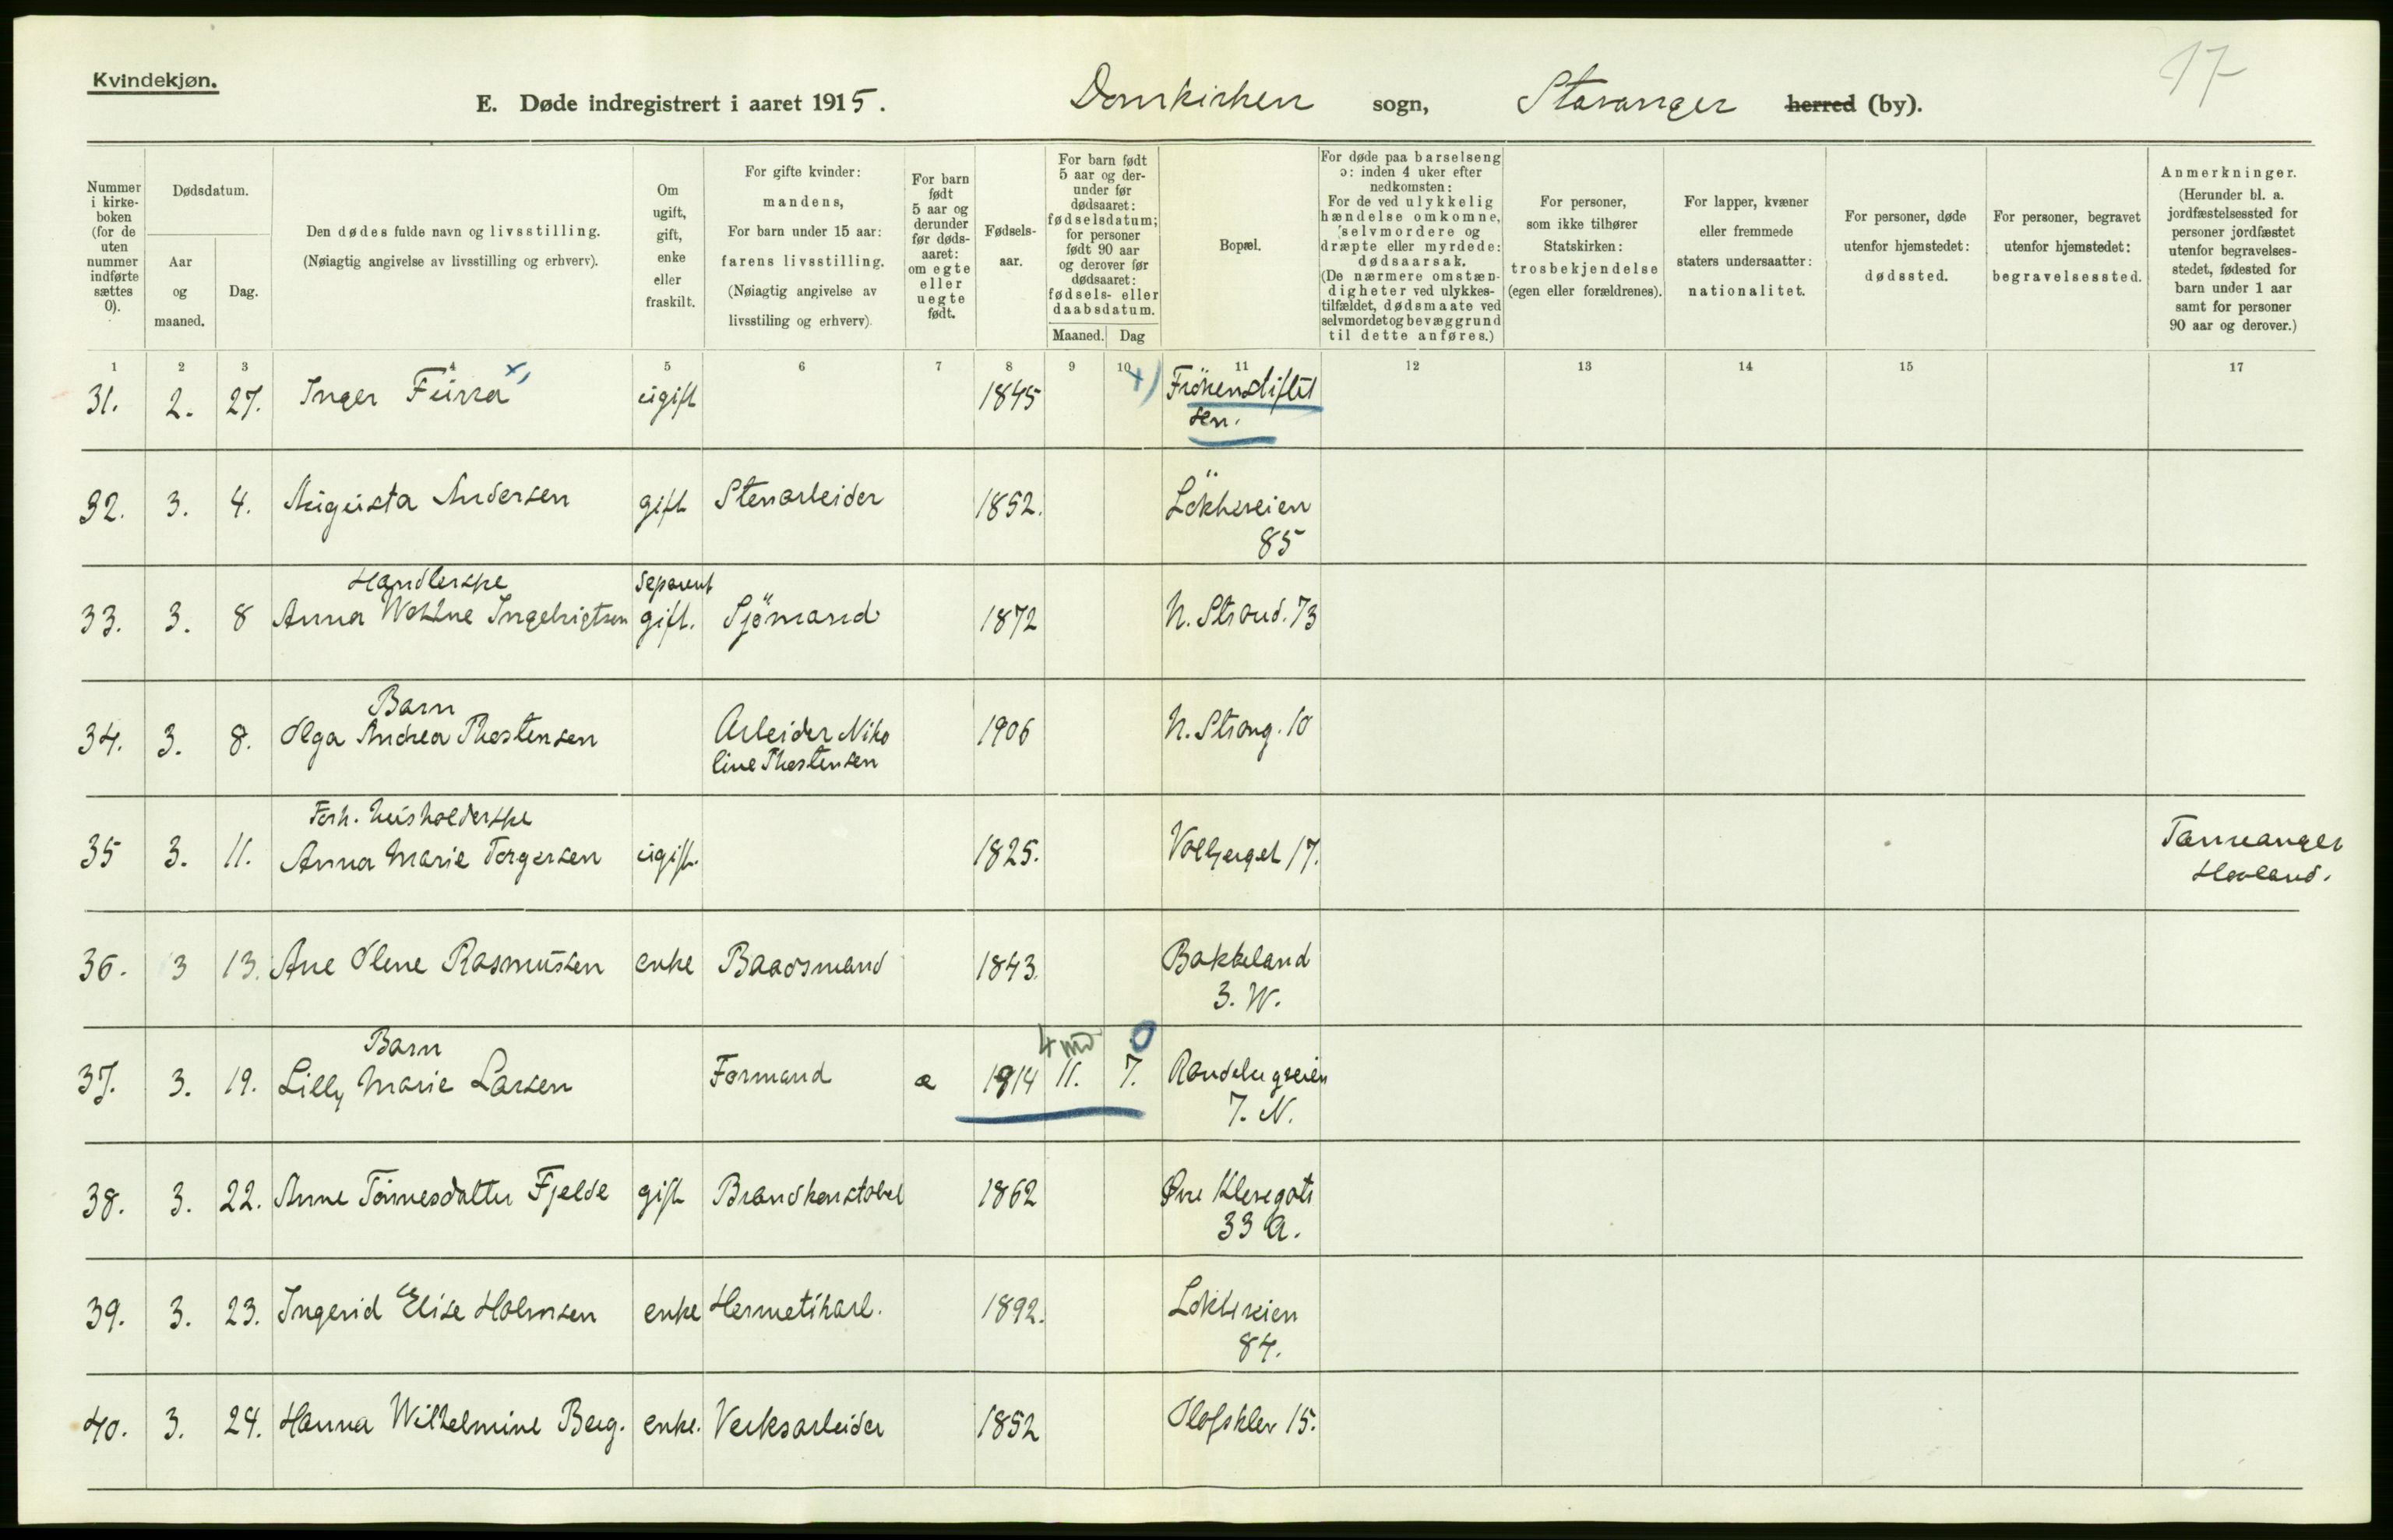 17
Kvindekjøn.
E. Døde indregistrert i aaret 1915. Domkirken sogn, Stavanger herred (by).
Nummer i kirke-boken (for de uten nummer indførte sættes 0).
Dødsdatum.
Aar og maaned.
Dag.
Den dødes fulde navn og livsstilling.
(Nøiagtig angivelse av livsstilling og erhverv).
Om ugift, gift, enke eller fraskilt.
For gifte kvinder: mandens,
For barn under 15 aar: farens livsstilling.
(Nøiagtig angivelse av livsstiling og erhverv).
For barn født 5 aar og derunder før døds-aaret: om egte eller uegte født.
Fødsels-aar.
For barn født 5 aar og der-under før dødsaaret: fødselsdatum; for personer født 90 aar og derover før dødsaaret: fødsels- eller daabsdatum.
Maaned. Dag
Bopæl.
For døde paa barselseng ɔ: inden 4 uker efter nedkomsten:
For de ved ulykkelig hændelse omkomne, selvmordere og dræpte eller myrdede: dødsaarsak.
(De nærmere omstæn-digheter ved ulykkes-tilfældet, dødsmaate ved selvmordet og bevæggrund til dette anføres.)
For personer, som ikke tilhører Statskirken: trosbekjendelse (egen eller forældrenes).
For lapper, kvæner eller fremmede staters undersaatter: nationalitet.
For personer, døde utenfor hjemstedet: dødssted.
For personer, begravet utenfor hjemstedet: begravelsessted.
Anmerkninger.
(Herunder bl. a. jordfæstelsessted for personer jordfæstet utenfor begravelses-stedet, fødested for barn under 1 aar samt for personer 90 aar og derover.)
1 2 3 4 5 6 7 8 9 10 11 12 13 14 15 17
31. 2. 27. Inger Furra x) ugift 1845 x) Frökenstiftelsen.
32. 3. 4. Augusta Andersen gift Stenarbeider 1852. Lökkeveien 85
Handlerske Separert
33. 3. 8 Anna Ingebrigtsen gift. Sjömand 1872 N. Strand. 73
Barn
34. 3. 8. Olga Andrea Thorstensen Arbeider Nikoline Thorstensen 1906 N. Strang. 10
Forh. husholderske
35 3. 11. Anna Marie Torgersen ugift. 1825. Volbjerget 17. Tananger Haaland.
36. 3 13. Ane Olene Rasmussen enke Baadsmand 1843. Bakkeland 3. W.
Barn 4 md 0
37. 3. 19. Lilly Marie Larsen Formand e 1914 11. 7. 7. N.
38. 3. 22. Anne Tönnesdatter Fjelde gift Brandkonstabel 1862 Øvre Klevegate 33 A.
39. 3. 23. Ingerid Elise Holmsen enke Hermetikarb. 1892. Lökkeveien 84.
40. 3. 24. Hanna Wilhelmine Berg. enke. Verksarbeider 1852 Olafsklev 15.